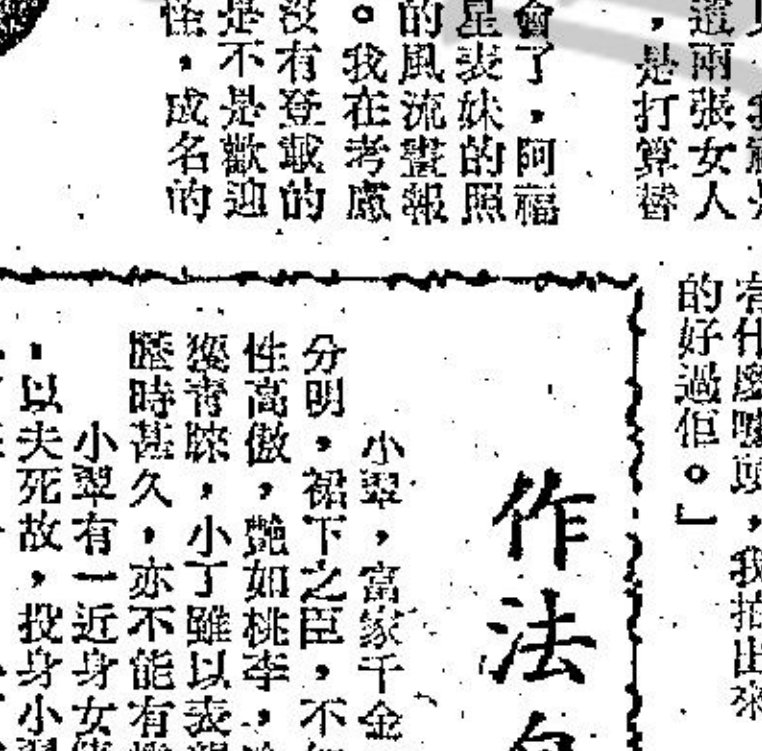 是打算替
這兩張女人
會了，阿福
星表妹的照
的風流畫報
。我在考慮
沒有登載的
是不是歡迎
怪，成名的
我拍出來
的好過佢。」
作法
小翠，富家千金
分明，裙下之臣，不
性高傲，艷如桃李，
獲青睞，小丁雖以表
歷時甚久，亦不能有
小翠有一近身女
，以夫死故，投身小翠